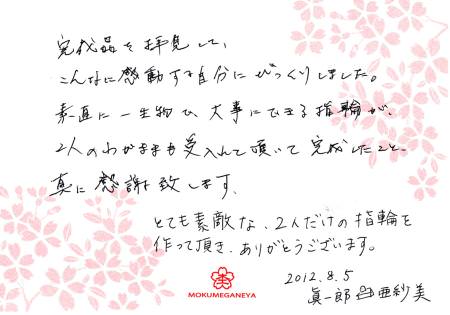 完成品を拝見して、
こんなに感動する自分にびっくりしました。
素直に一生物で、大事にできる指輪が、
2人のわがままも受入れて頂いて完成したこと、
真に感謝致します。
とても素敵な、2人だけの指輪を
作って頂き、ありがとうございます。
2012.8.5
眞一郎 亜紗美
MOKUMEGANEYA